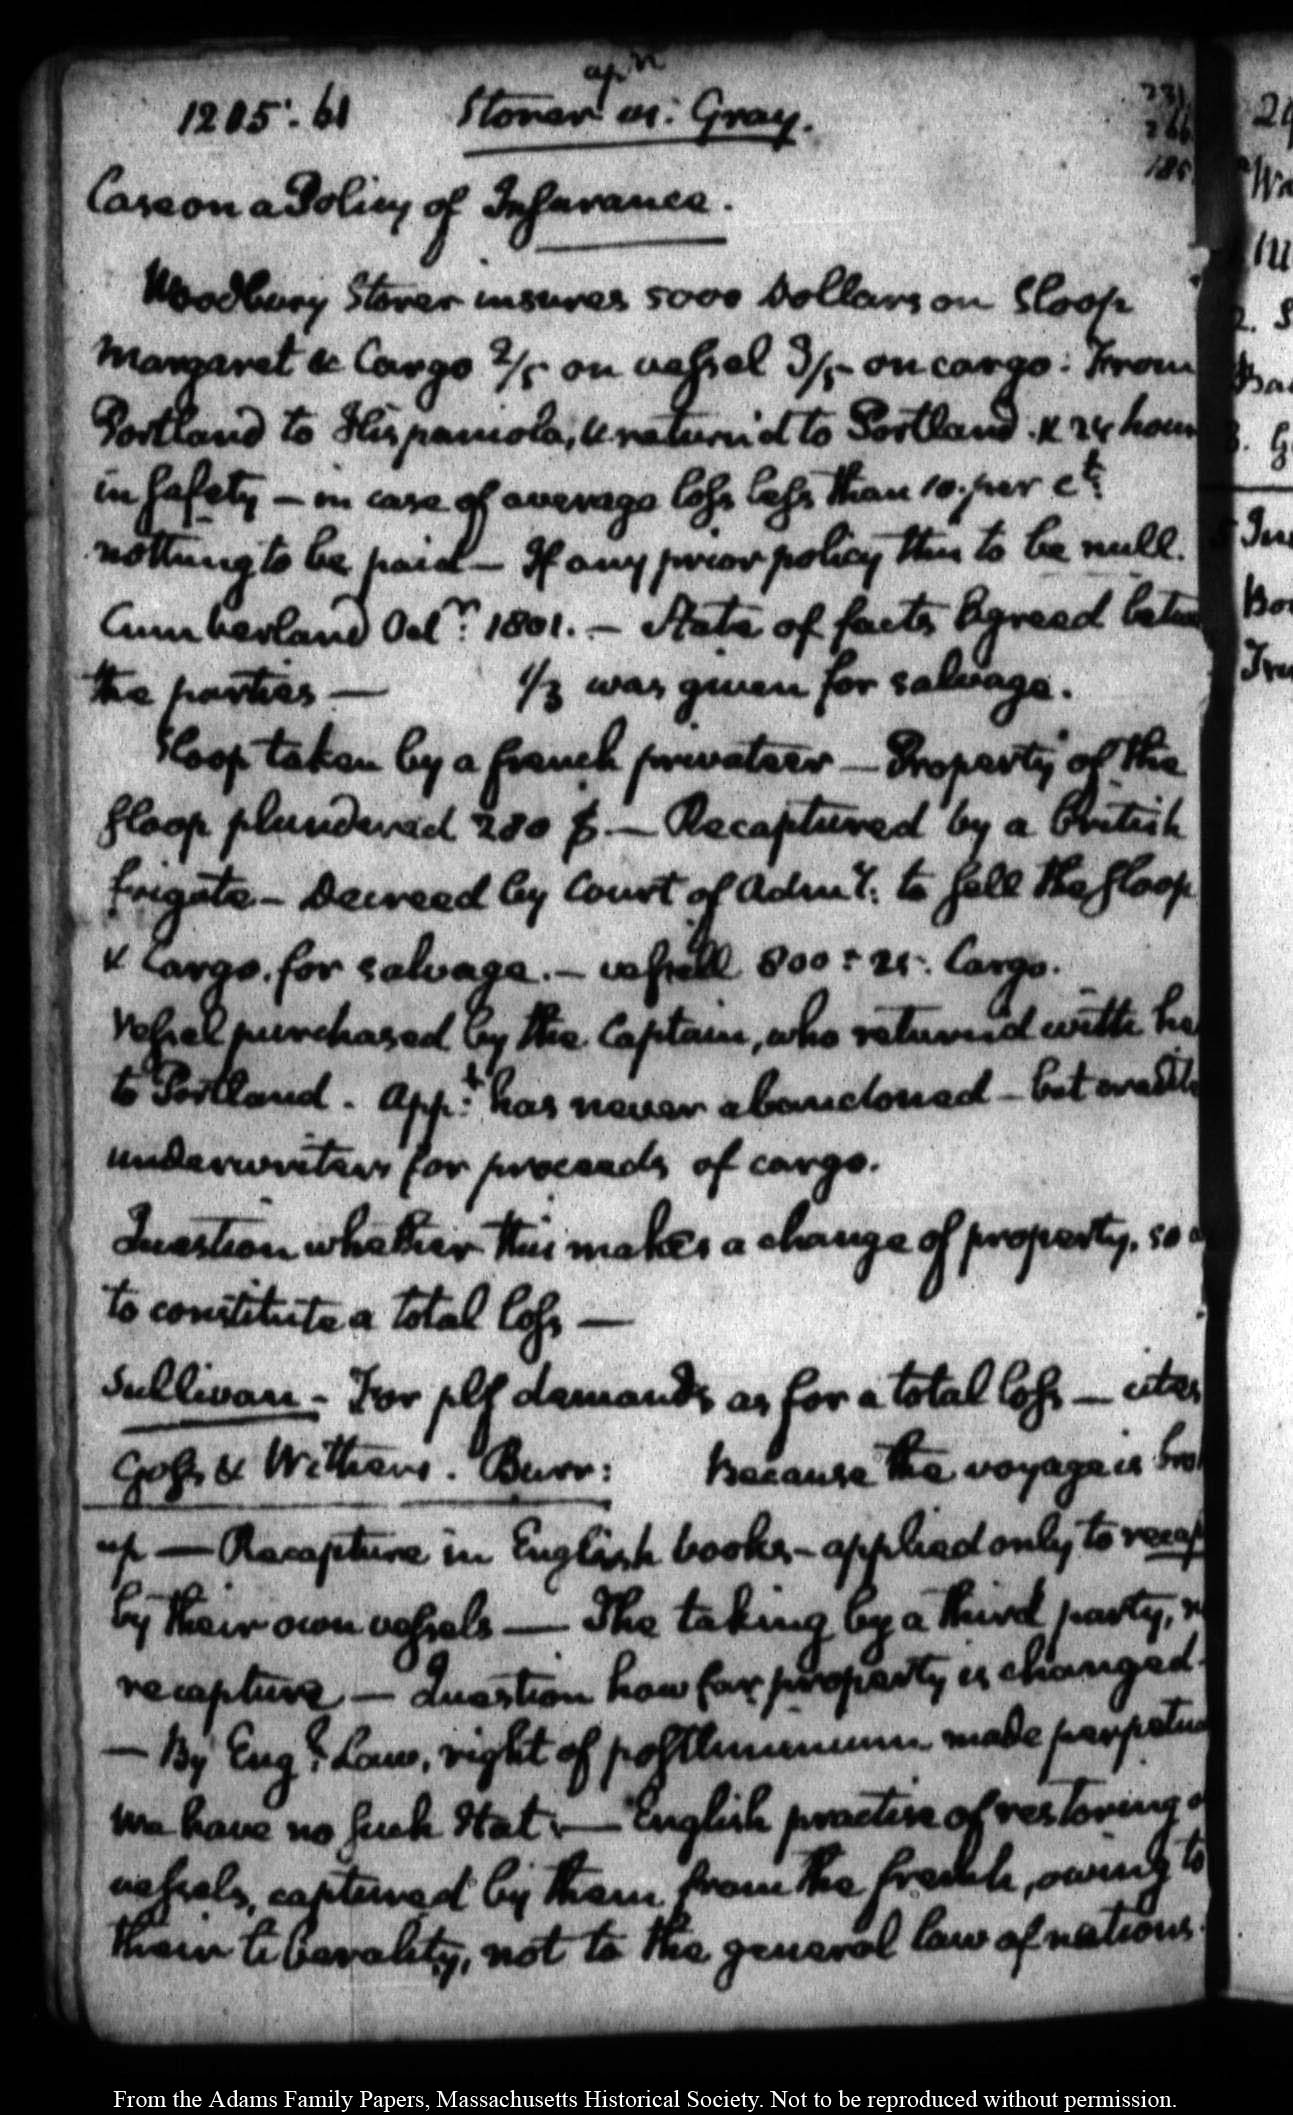 1205. 61 Storer ap.n vs: Gray.
231
266
185
Case on a Policy of Insurance.
Woodbury Storer insures 5000 Dollars on Sloop
Margaret & Cargo 2/5 on vessel 3/5 on cargo: From
Portland to Hispaniola, & return'd to Portland. & 24 hour
in safety — in case of average loss less than 10. per ct:
nothing to be paid — If any prior policy this to be null.
Cumberland Octr: 1801. — State of facts Agreed betw
the parties — 1/3 was given for salvage.
Sloop taken by a french privateer — Property of the
sloop plundered 280 $ — Recaptured by a British
frigate — Decreed by Court of Admy: to sell the sloop
& Cargo. for salvage. — vessell 800: 25. Cargo.
Vessel purchased by the Captain, who return'd with he
to Portland. Appt: has never abandoned — but credits
underwriters for proceeds of cargo.
Question whether this makes a change of property, so a
to constitute a total loss —
Sullivan — For plf demands as for a total loss — cites
Goss & Withers. Burr: Because the voyage is brok
up — Recapture in English books — applied only to recap
by their own vessels — The taking by a third party, n
recapture — Question how far property is changed.
— By Engl: Law, right of postliminium made perpetua
we have no such stat: — English practise of restoring o
vessels, captured by them from the french, owing to
their liberality, not to the general law of nations.
2.
3.
5
From the Adams Family Papers, Massachusetts Historical Society. Not to be reproduced without permission.